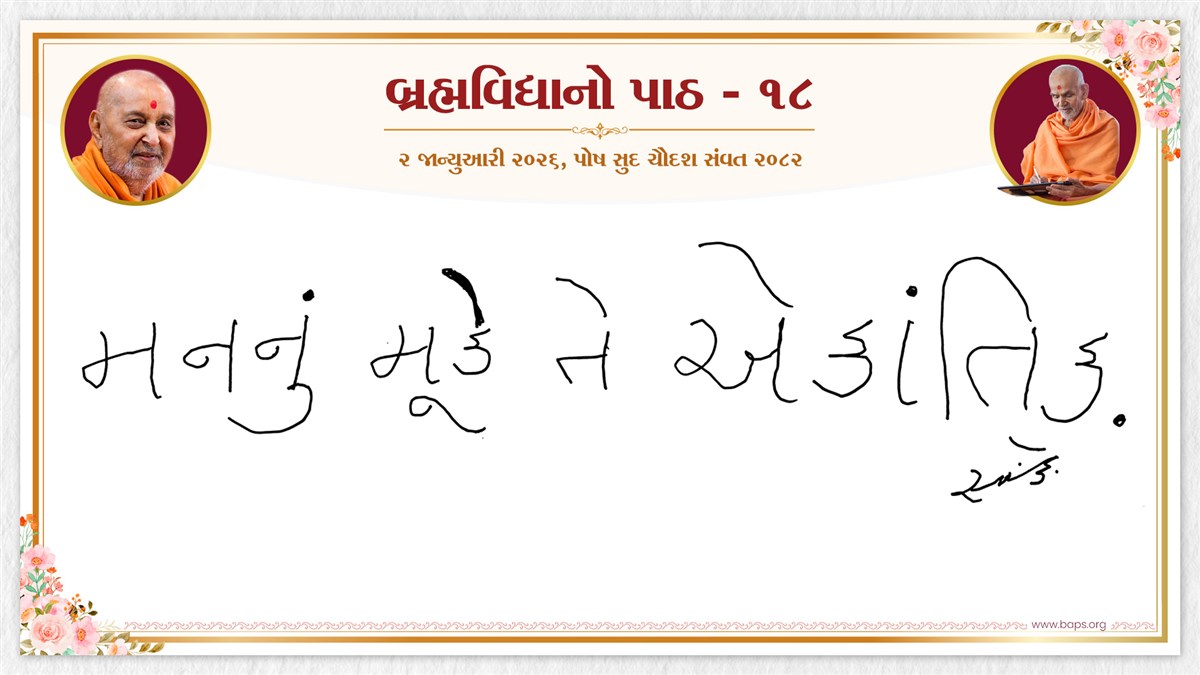 બ્રહ્મવિદ્યાનો પાઠ - ૧૮
૨ જાન્યુઆરી ૨૦૨૬, પોષ સુદ ચૌદશ સંવત ૨૦૮૨
મનનું મૂકે તે એકાંતિક.
www.baps.org